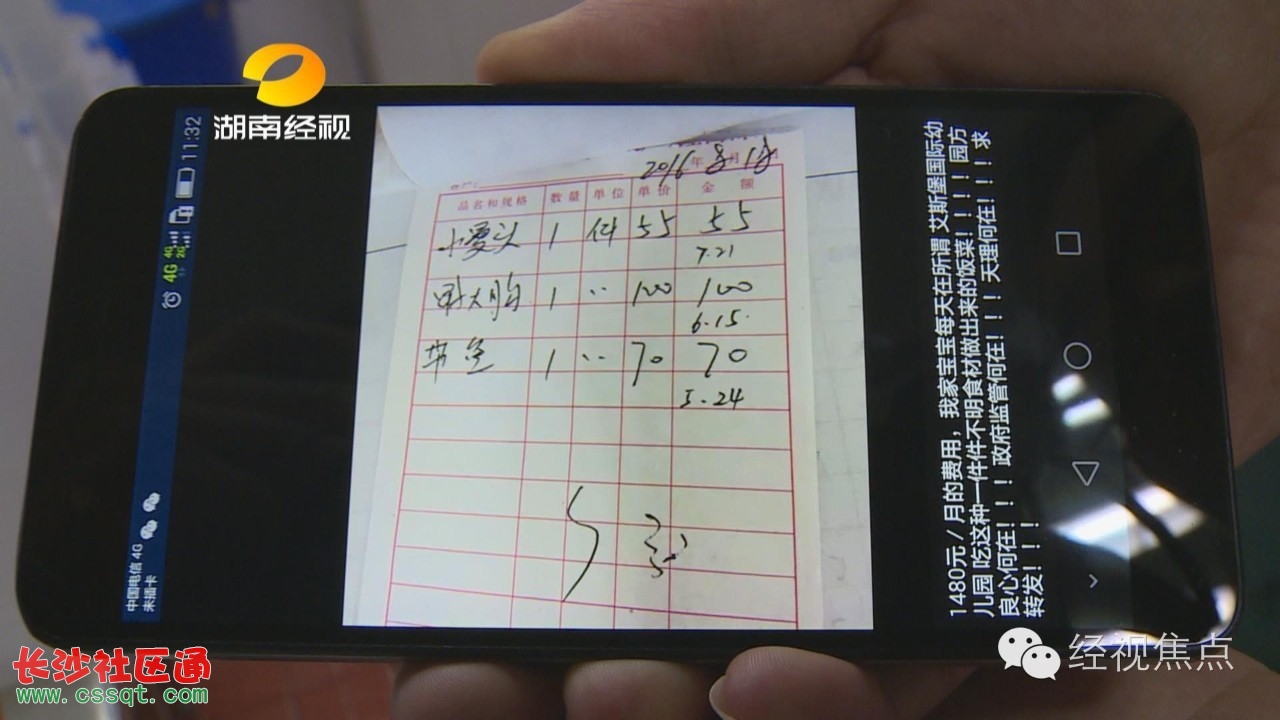 湖南经视
11:32
4G
4G
2G
中国电信 4G
未插卡
2016年8月1号
品名和规格 数量 单位 单价 金额
小馒头 1 件 55 55
7.21
1 〃 100 100
6.15.
带鱼 1 〃 70 70
5.24
1480元／月的费用，我家宝宝每天在所谓 艾斯堡国际幼
儿园 吃这种一件件不明食材做出来的饭菜！！！！园方
良心何在！！！ 政府监管何在！！！ 天理何在！！！ 求
转发！！！
经视焦点
长沙社区通
www.cssqt.com